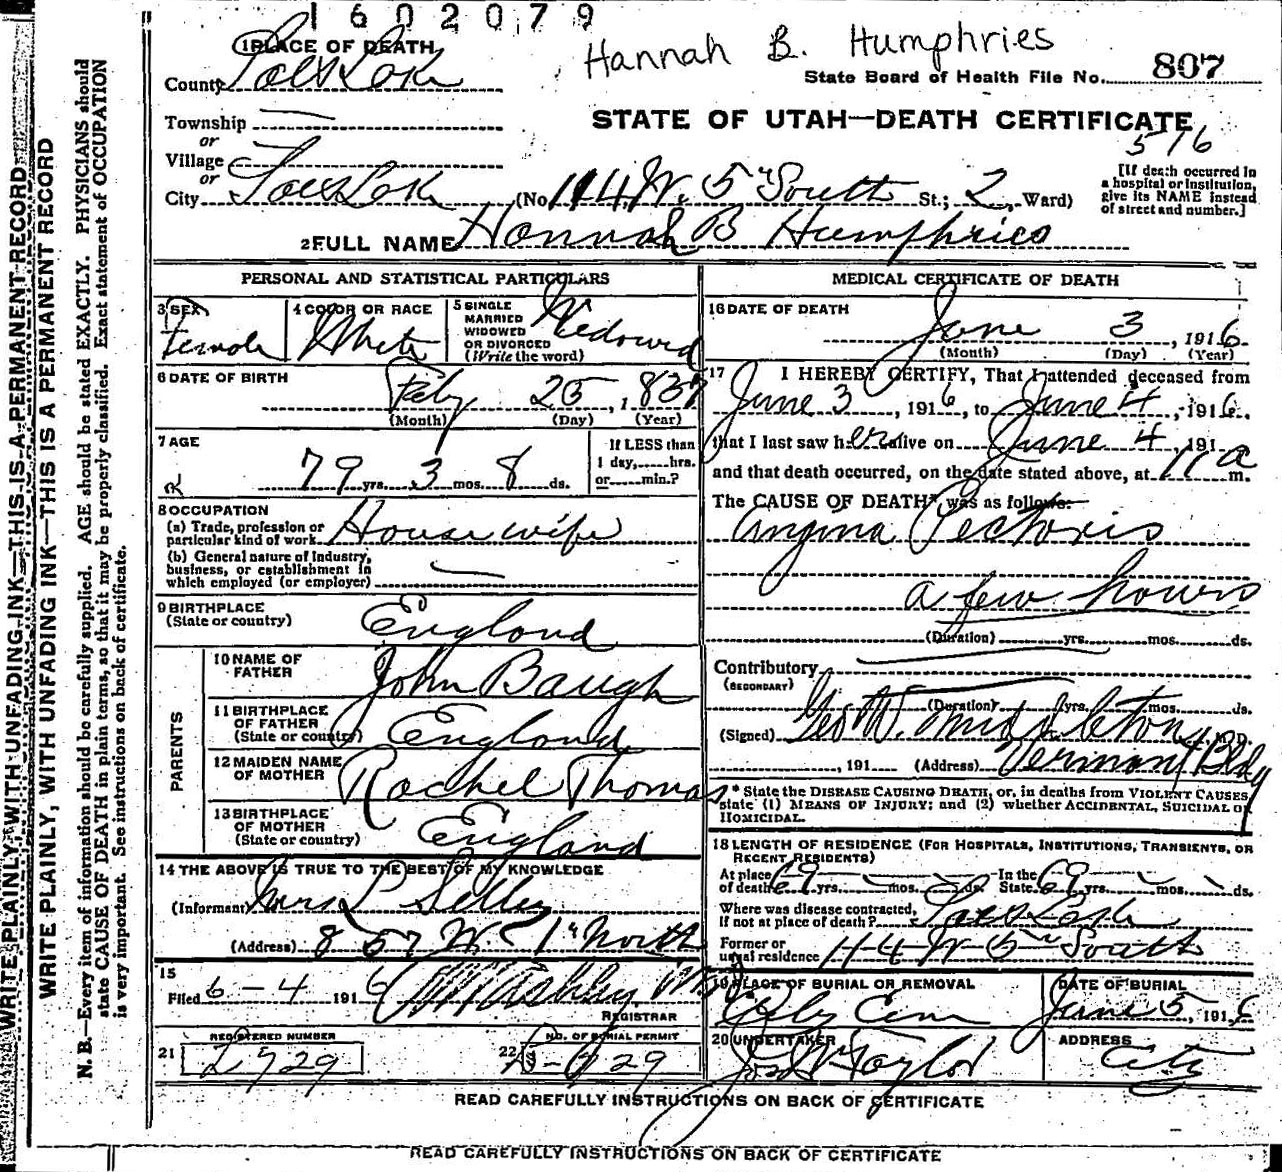 1602079
Hannah B. Humphries
State Board of Health File No. 807
1 PLACE OF DEATH
County Salt Lake
STATE OF UTAH—DEATH CERTIFICATE
516
Township
or
Village
or
City Salt Lake (No 114 W. 5" South St.; 2 Ward)
[If death occurred in
a hospital or institution,
give its NAME instead
of street and number.]
2 FULL NAME Hannah B Humphries
PERSONAL AND STATISTICAL PARTICULARS
3 SEX
Female
4 COLOR OR RACE
White
5 SINGLE
MARRIED
WIDOWED
OR DIVORCED
(Write the word)
Widowed
6 DATE OF BIRTH
Feby 25, 1837
(Month) (Day) (Year)
7 AGE
79 yrs. 3 mos. 8 ds.
If LESS than
1 day,......hrs.
or......min.?
8 OCCUPATION
(a) Trade, profession or
particular kind of work
House wife
(b) General nature of industry,
business, or establishment in
which employed (or employer)
9 BIRTHPLACE
(State or country)
England
PARENTS
10 NAME OF
FATHER
John Baugh
11 BIRTHPLACE
OF FATHER
(State or country)
England
12 MAIDEN NAME
OF MOTHER
Rachel Thomas
13 BIRTHPLACE
OF MOTHER
(State or country)
England
14 THE ABOVE IS TRUE TO THE BEST OF MY KNOWLEDGE
(Informant) Mrs
(Address) 857 W 1" North
15
Filed 6-4 1916
REGISTRAR
REGISTERED NUMBER
21
NO. OF BURIAL PERMIT
22
MEDICAL CERTIFICATE OF DEATH
16 DATE OF DEATH
June 3, 1916
(Month) (Day) (Year)
17 I HEREBY CERTIFY, That I attended deceased from
June 3, 1916, to June 4, 1916.
that I last saw her alive on June 4, 191
and that death occurred, on the date stated above, at 11 a m.
The CAUSE OF DEATH* was as follows:
Angina Pectoris
a few hours
(Duration) yrs. mos. ds.
Contributory
(SECONDARY)
(Duration) yrs. mos. ds.
(Signed) Geo W. Middleton, M.D.
, 191 (Address) Vermont Bldg
* State the DISEASE CAUSING DEATH, or, in deaths from VIOLENT CAUSES,
state (1) MEANS OF INJURY; and (2) whether ACCIDENTAL, SUICIDAL or
HOMICIDAL.
18 LENGTH OF RESIDENCE (FOR HOSPITALS, INSTITUTIONS, TRANSIENTS, OR
RECENT RESIDENTS)
At place
of death 69 yrs. mos. ds.
In the
State 69 yrs. mos. ds.
Where was disease contracted,
If not at place of death? Salt Lake
Former or
usual residence 114 W 5" South
19 PLACE OF BURIAL OR REMOVAL
City Cem
DATE OF BURIAL
June 5, 1916
20 UNDERTAKER
Jos Wm Taylor
ADDRESS
City
READ CAREFULLY INSTRUCTIONS ON BACK OF CERTIFICATE
READ CAREFULLY INSTRUCTIONS ON BACK OF CERTIFICATE
WRITE PLAINLY, WITH UNFADING INK—THIS IS A PERMANENT RECORD
WRITE PLAINLY, WITH UNFADING INK—THIS IS A PERMANENT RECORD
N. B.—Every item of information should be carefully supplied. AGE should be stated EXACTLY. PHYSICIANS should
state CAUSE OF DEATH in plain terms, so that it may be properly classified. Exact statement of OCCUPATION
is very important. See instructions on back of certificate.